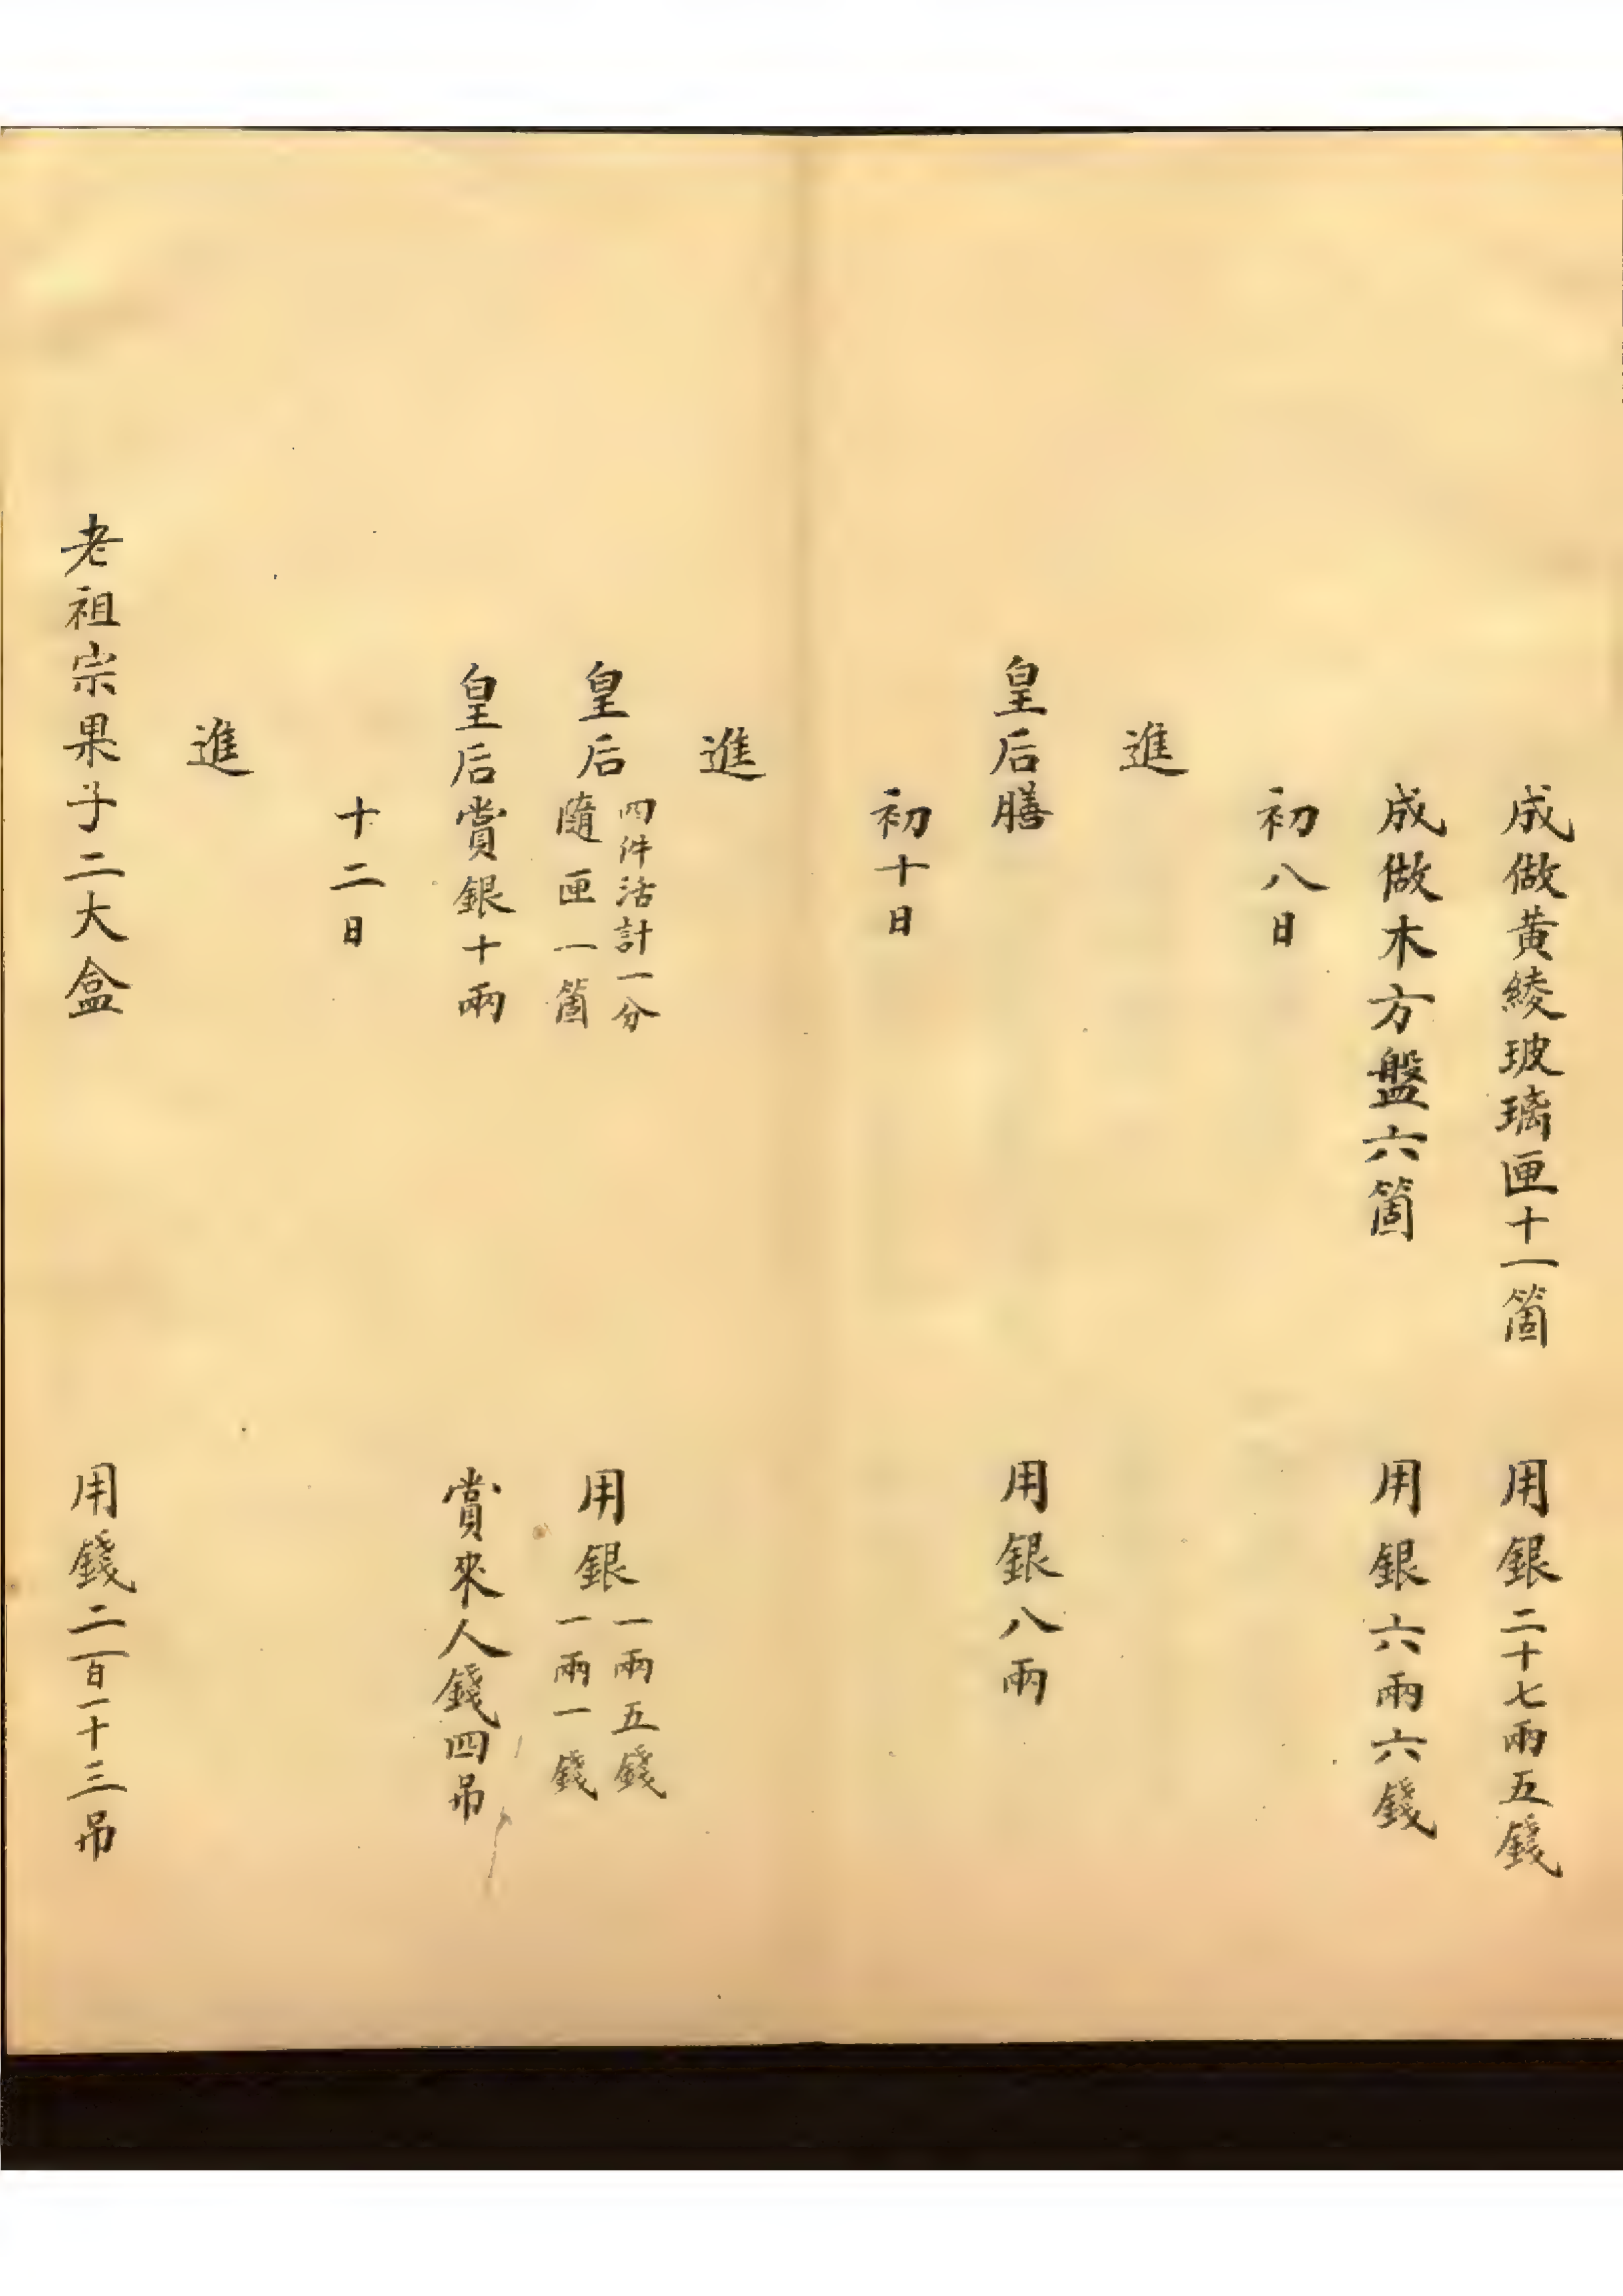 成做黃綾玻璃匣十一箇　用銀二十七兩五錢
成做木方盤六箇　用銀六兩六錢
初八日
進
皇后膳　用銀八兩
初十日
進
皇后四件活計一分隨匣一箇　用銀一兩五錢一兩一錢
皇后賞銀十兩　賞來人錢四吊
十二日
進
老祖宗果子二大盒　用錢二百一十三吊